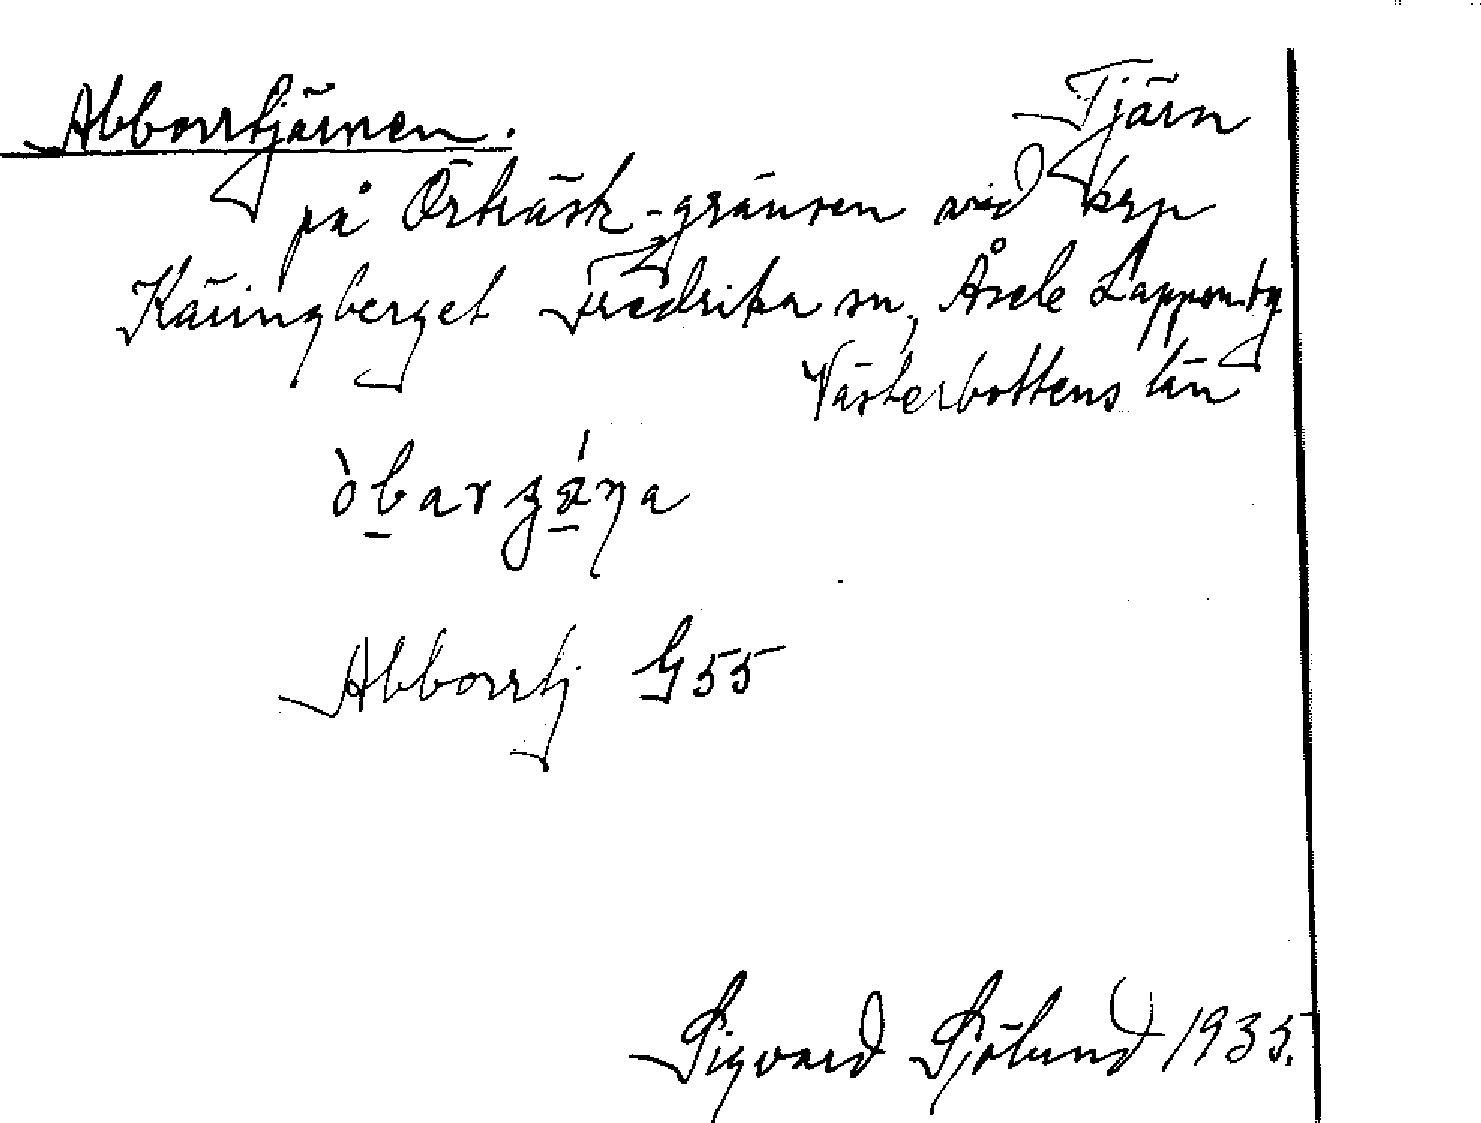 Abborrtjärnen. Tjärn
på Örträsk-gränsen vid krp
Käringberget Fredrika sn, Åsele Lappm.
Västerbottens län
Abborrtj G55
Sigvard Sjölund 1935.